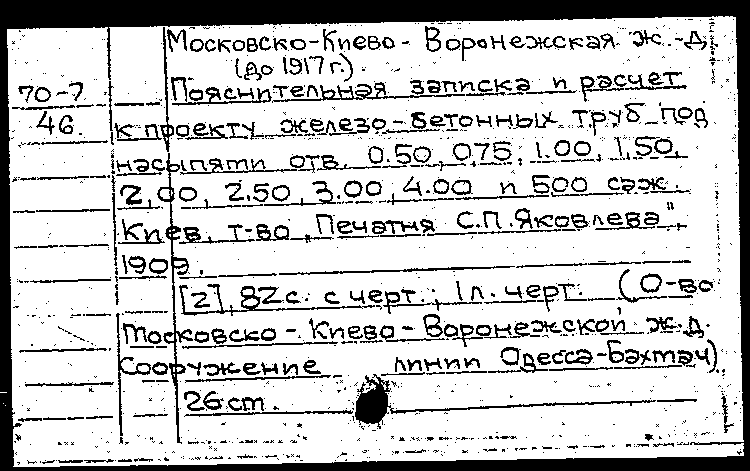 Московско-Киево-Воронежская ж.-д.
(до 1917 г.).
70-7 Пояснительная записка и расчет
46. к проекту железо-бетонных труб под
насыпями отв. 0.50, 0,75, 1.00, 1,50,
2,00, 2.50, 3.00, 4.00 и 500 саж.
Киев, т-во „Печатня С.П.Яковлева",
1909.
[2], 82 с. с черт.; 1 л. черт. (О-во
Московско-Киево-Воронежской ж.д.
Сооружение линии Одесса-Бахмач)
26 см.